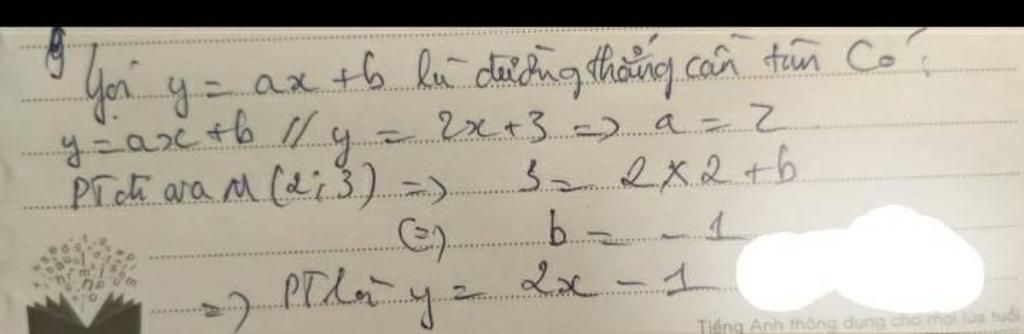 Gọi y = ax + b là đường thẳng cần tìm Có :
y = ax + b // y = 2x + 3 => a = 2
PT đi qua M (2; 3) => 3 = 2 × 2 + b
(=) b = - 1
=> PT là y = 2x - 1
Tiếng Anh thông dụng cho mọi lứa tuổi